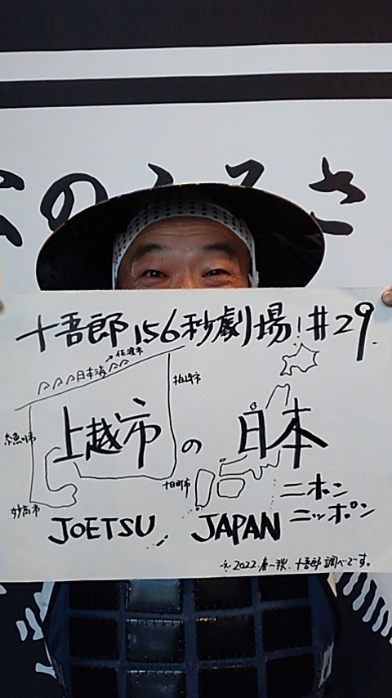 のふるさ
十吾郎156秒劇場!#29.
佐渡市
日本海
柏崎市
糸魚川市
上越市の日本
妙高市
十日町市
ニホン
ニッポン
JOETSU JAPAN
※2022.春〜秋、十吾郎調べです。